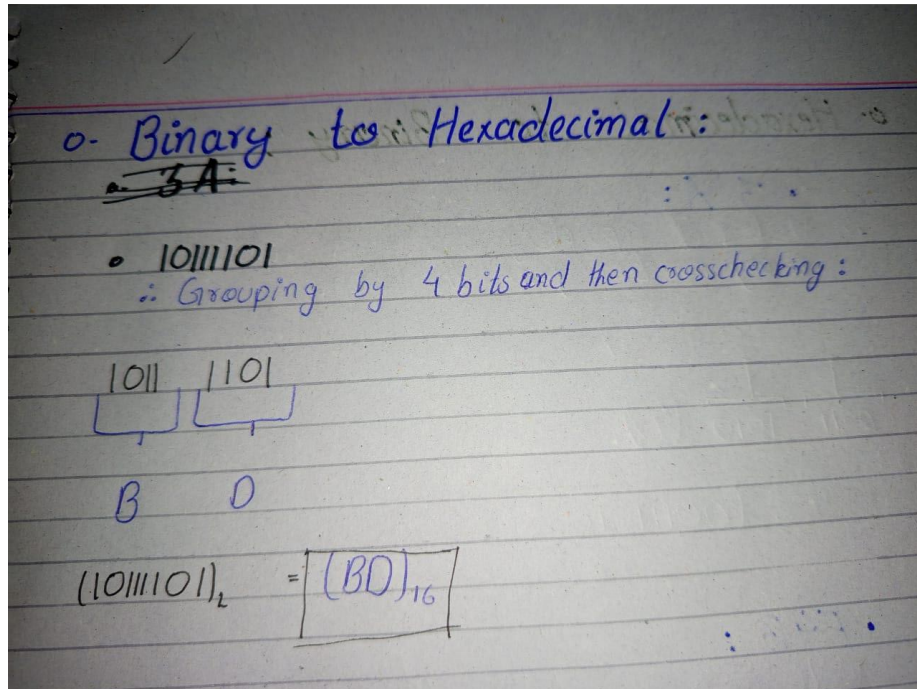 o- Binary to Hexadecimal:
a. 3A:
• 10111101
∴ Grouping by 4 bits and then crosschecking:
1011 1101
B D
(10111101)₂ = (BD)₁₆